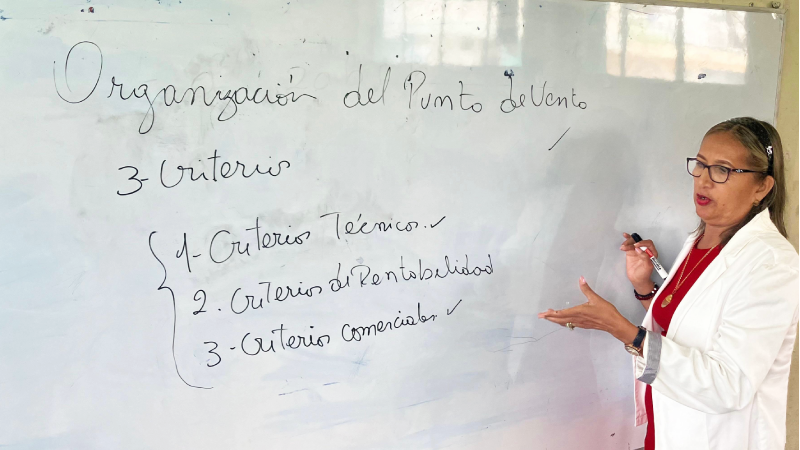 Organización del Punto de Venta
3- Criterios
1- Criterios Técnicos.
2. Criterios de Rentabilidad
3- Criterios comerciales.